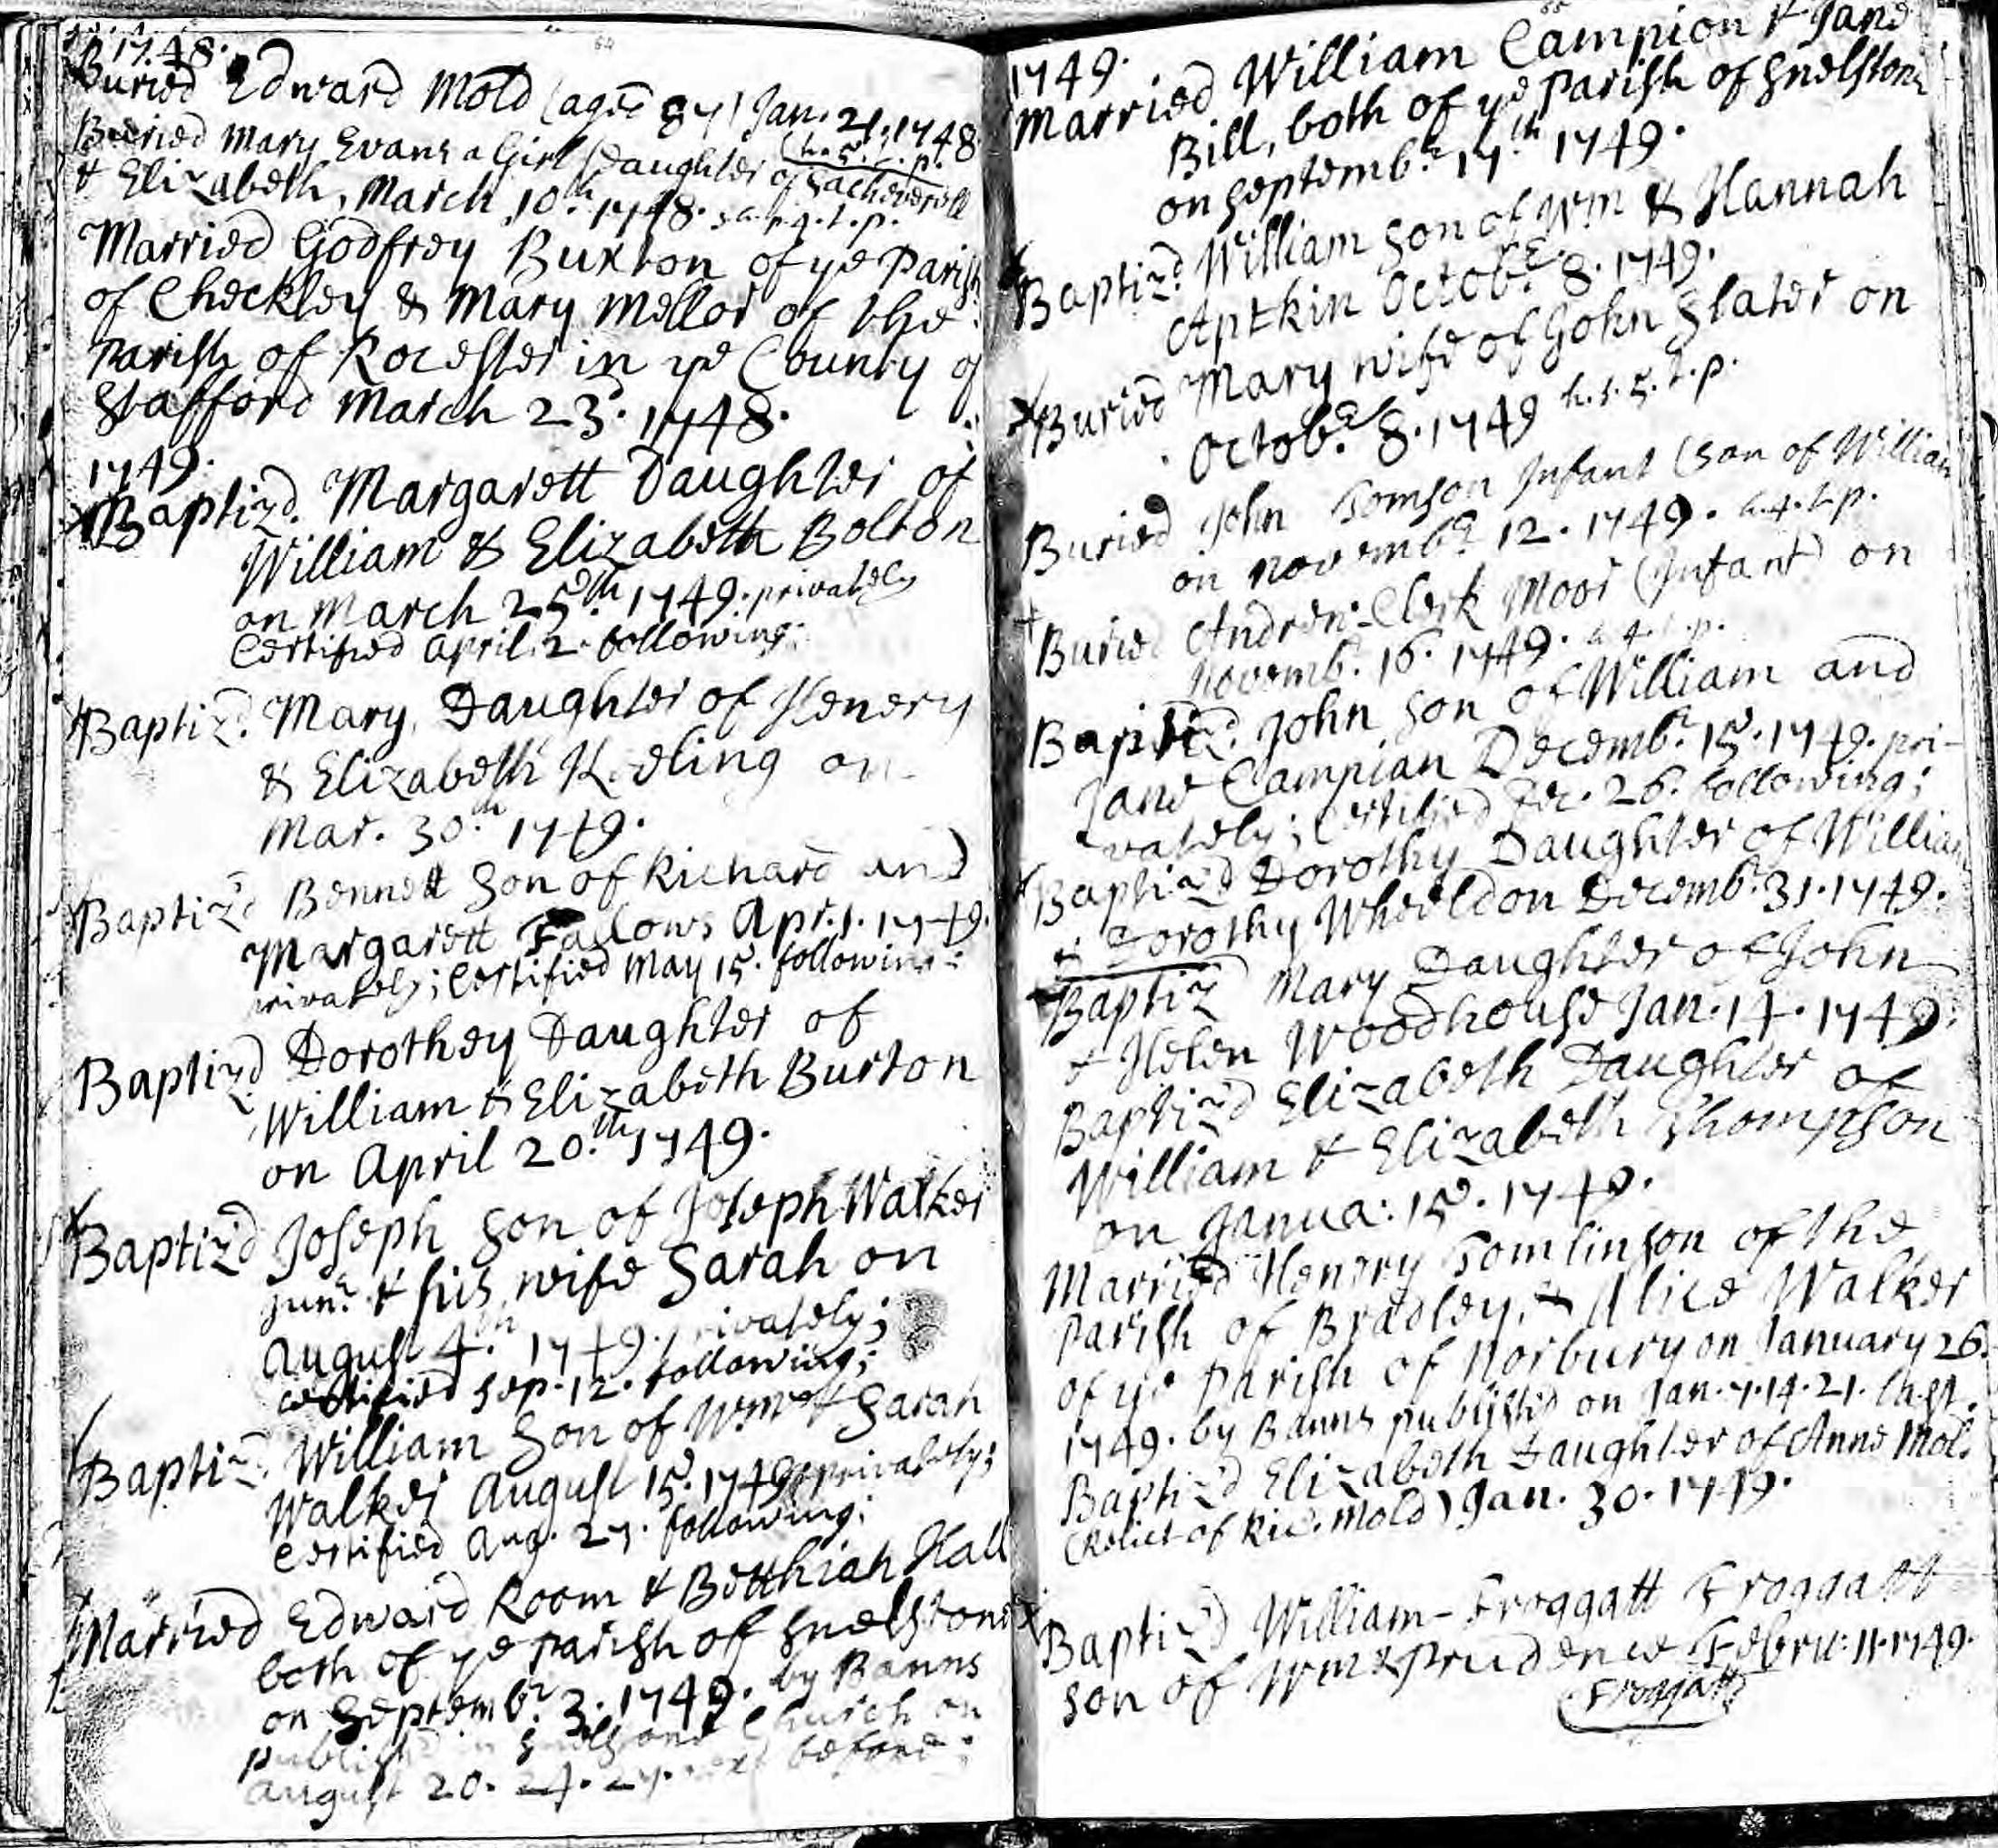 1748.
Buried Edward Mold (aged 87) Jan. 21. 1748
Buried Mary Evans a Girl (Daughter of Sacheverell
& Elizabeth, March 10th. 1748.
Married Godfrey Buxton of ye Parish
of Checkley & Mary Mellor of the
Parish of Rocester in ye County of
Stafford March 23d. 1748.
1749.
Baptizd. Margarett Daughter of
William & Elizabeth Bolton
on March 25th. 1749. privately
Certified April. 2. following;
Baptizd. Mary, Daughter of Henery
& Elizabeth Keeling on
Mar. 30th 1749.
Baptiz'd Bennett Son of Richard and
Margarett Fallows Apr. 1. 1749.
privately; Certified May 15. following;
Baptizd Dorothey Daughter of
William & Elizabeth Burton
on April 20th. 1749.
Baptiz'd Joseph Son of Joseph Walker
Junr. & his wife Sarah on
August 4th. 1749. privately;
certified Sep. 12. following;
Baptizd. William Son of Wm. & Sarah
Walker August 15. 1749. privately;
Certified Aug. 27. following;
Married Edward Room & Betthiah Hall
both of ye Parish of Snelstone
on Septembr. 3. 1749. by Banns
publish'd in Snelstone Church on
August 20. 24. 27. next before;
1749.
Married William Campion & Jane
Bill, both of ye Parish of Snelstone
on Septembr. 17th. 1749.
Baptizd. William Son of Wm & Hannah
Aptkin Octobr. 8. 1749.
Buried Mary wife of John Slater on
Octobr. 8. 1749 h.s.s.t.p.
Buried John Tomson Infant (Son of William
on Novembr. 12. 1749.
Buried Andrew-Clerk Moor (Infant) on
Novembr. 16. 1749.
Baptizd. John Son of William and
Jane Campian Decembr. 15. 1749. pri-
vately; Certified Dec. 26. following;
Baptiz'd Dorothy Daughter of William
& Dorothy Wheeldon Decembr. 31. 1749.
Baptiz'd Mary Daughter of John
& Helen Woodhouse Jan. 14. 1749.
Baptiz'd Elizabeth Daughter of
William & Elizabeth Thompson
on Janua: 15. 1749.
Married Henery Tomlinson of the
Parish of Bradley, & Alice Walker
of ye Parish of Norbury on January 26.
1749. by Banns publish'd on Jan. 7. 14. 21. last.
Baptiz'd Elizabeth Daughter of Anne Mold
(Relict of Ric. Mold) Jan. 30. 1749.
Baptiz'd William-Froggatt Froggatt
Son of Wm & Prudence Febru: 11. 1749.
Froggatt